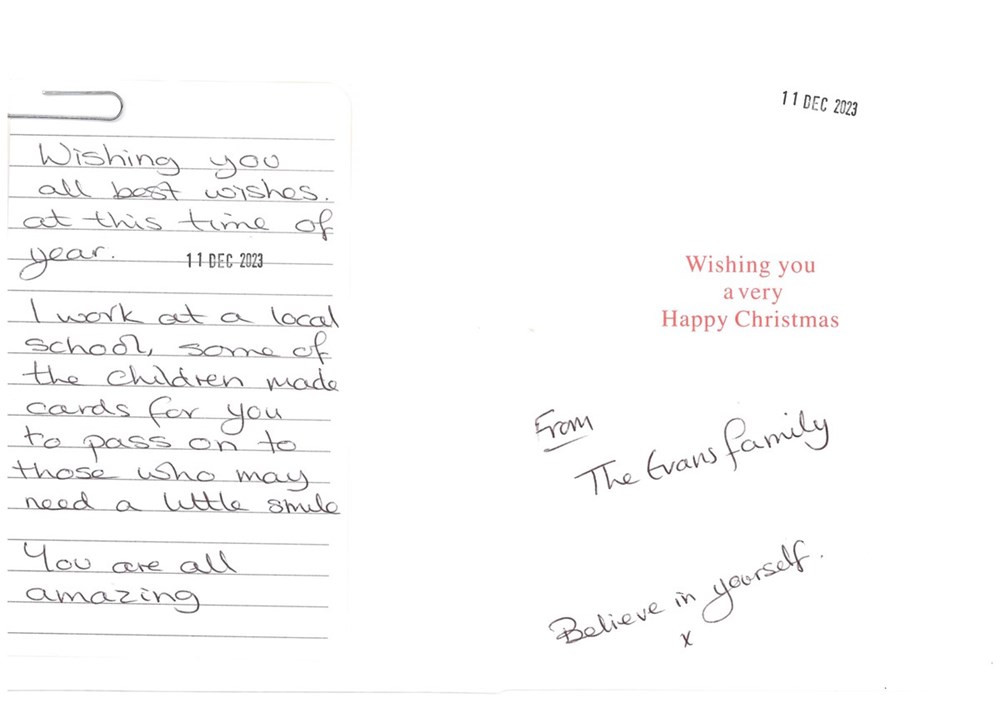 Wishing you
all best wishes.
at this time of
year.
11 DEC 2023
I work at a local
school, some of
the children made
cards for you
to pass on to
those who may
need a little smile
You are all
amazing
11 DEC 2023
Wishing you
a very
Happy Christmas
From
The Evans family
Believe in yourself.
x